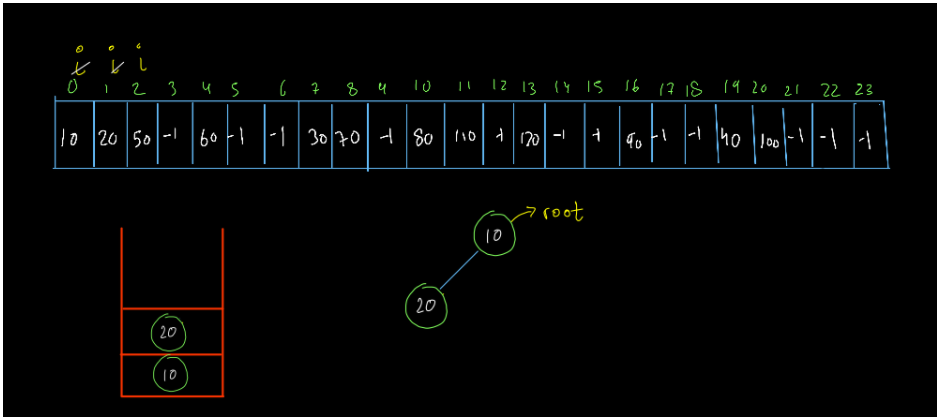 i i i
0 1 2 3 4 5 6 7 8 9 10 11 12 13 14 15 16 17 18 19 20 21 22 23
10 20 50 -1 60 -1 -1 30 70 -1 80 110 -1 120 -1 -1 90 -1 -1 40 100 -1 -1 -1
root
10
20
20
10